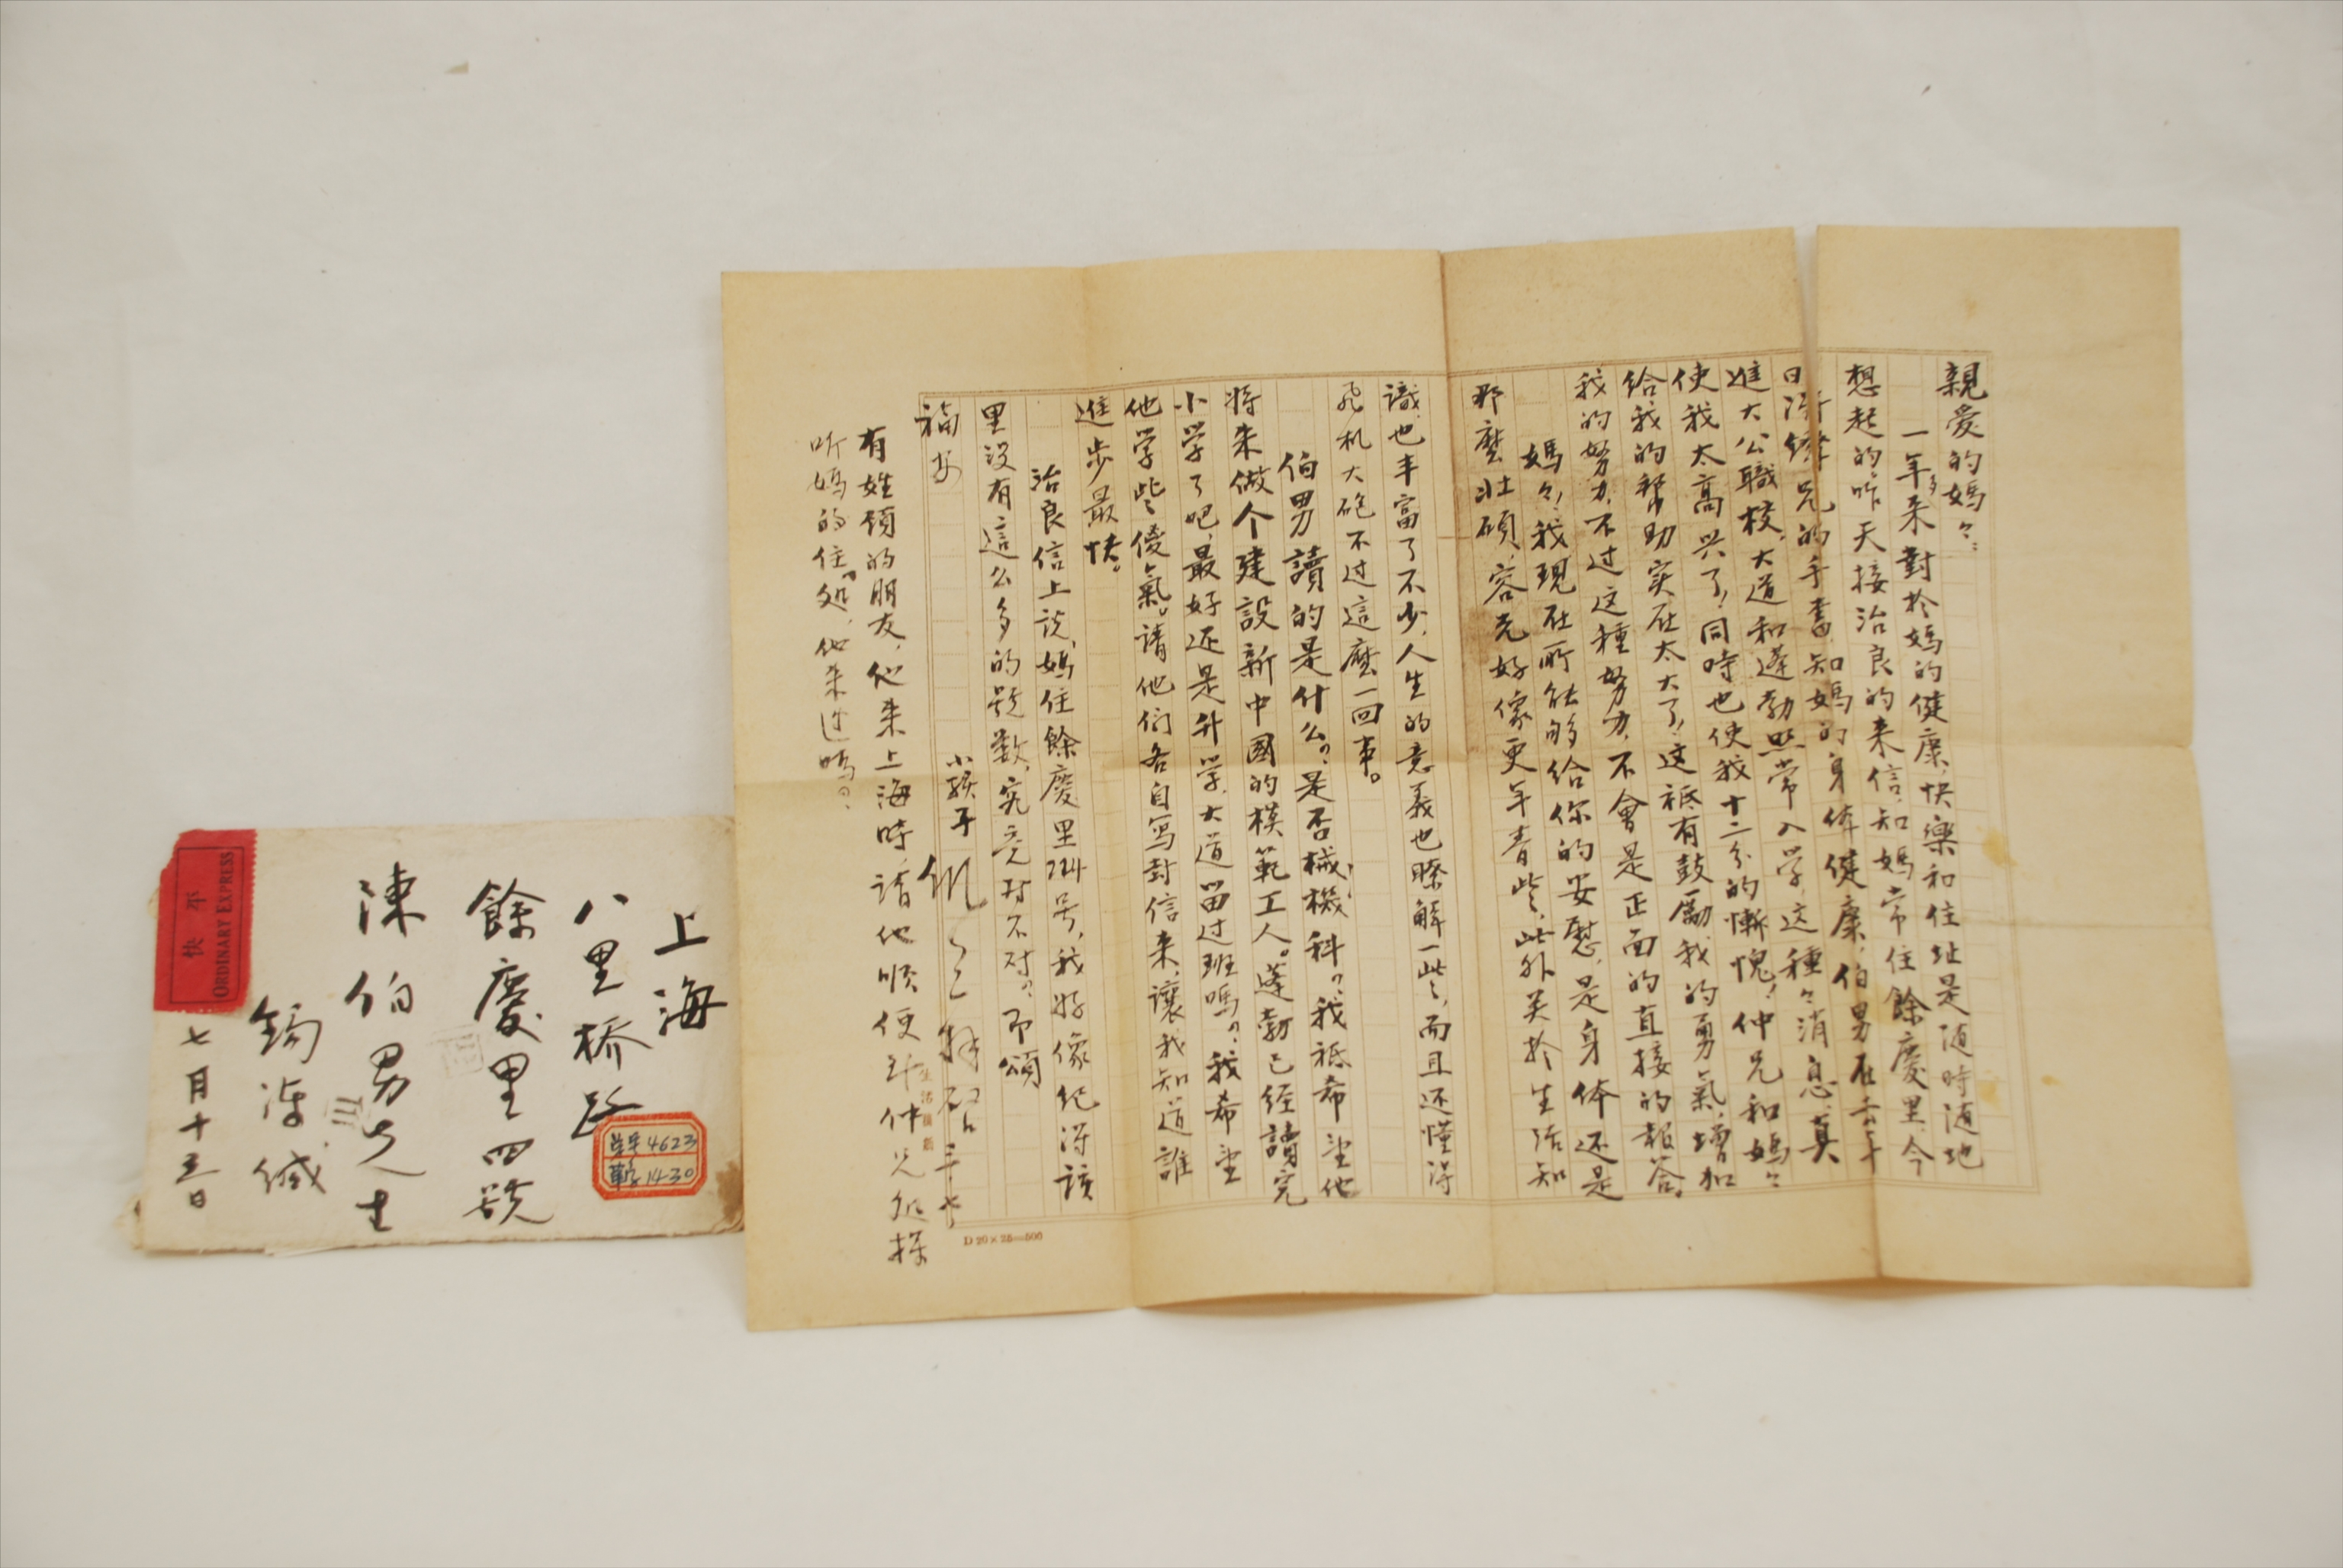 親爱的媽々：
一年多来對於媽的健康，快樂和住址是随時随地
想起的，昨天接治良的来信，知媽常住餘慶里，今
日得鏵兄的手書，知媽的身体健康，伯男在去年
進大公職校，大道和蓬勃照常入学，这種々消息，真
使我太高兴了，同時也使我十二分的慚愧！仲兄和媽々
給我的幫助实在太大了，这祗有鼓勵我的勇氣，增加
我的努力，不过这種努力，不會是正面的直接的報答。
媽々，我現在所能够給你的安慰，是身体还是
那麽壮碩，容光好像更年青些，此外关於生活知
識，也丰富了不少，人生的意義也瞭解一些，而且还懂得
飛机大砲不过這麽一回事。
伯男讀的是什么？是否械機科？我祗希望他
将来做个建設新中國的模範工人。蓬勃已经讀完
小学了吧，最好还是升学，大道留过班嗎？我希望
他学些傻氣。請他们各自寫封信来，讓我知道誰
進步最快。
治良信上说，媽住餘慶里724号，我好像纪得该
里没有這么多的号数，究竟对不对？即頌
福安
小孩子
有姓顧的朋友，他来上海時，請他順便到仲兄处探
听媽的住处，他来过嗎？
D 20×25=500
上海
八里桥路
餘慶里四號
陳伯男先生
錫 缄
七月十五日
平快
ORDINARY EXPRESS
4623
14-30